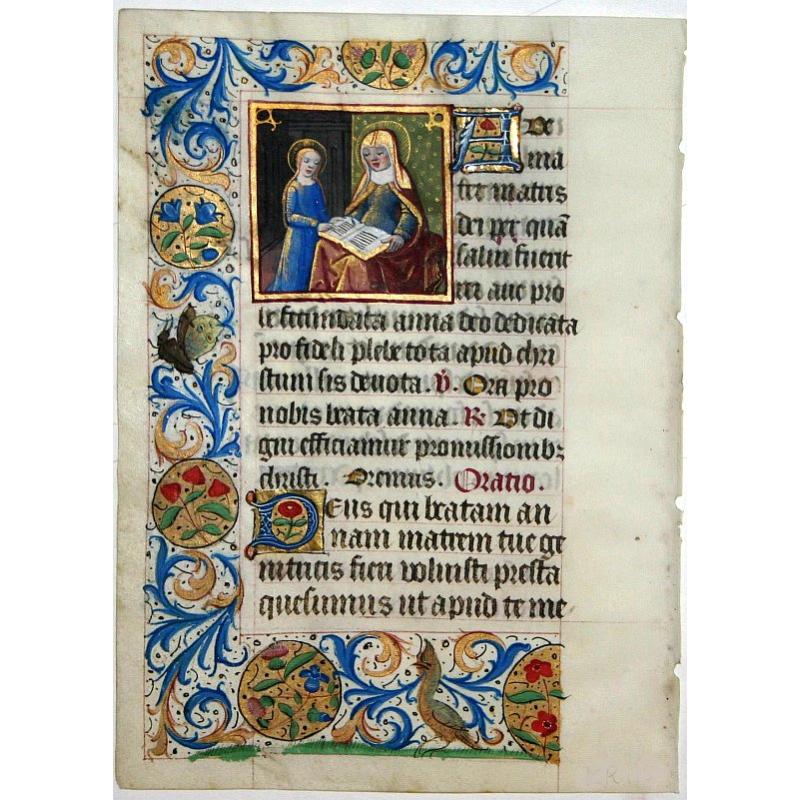 Ave
ma
ter matris
dei per quā
salui fuerit
rei aue pro
le fecundata anna deo dedicata
pro fideli plebe tota apud chri
stum sis deuota. V̄. Ora pro
nobis beata anna. R. Vt di
gni efficiamur promissionibꝫ
christi. Oremus. Oratio.
Deus qui beatam an
nam matrem tue ge
nitricis fieri voluisti presta
quesumus ut apud te me